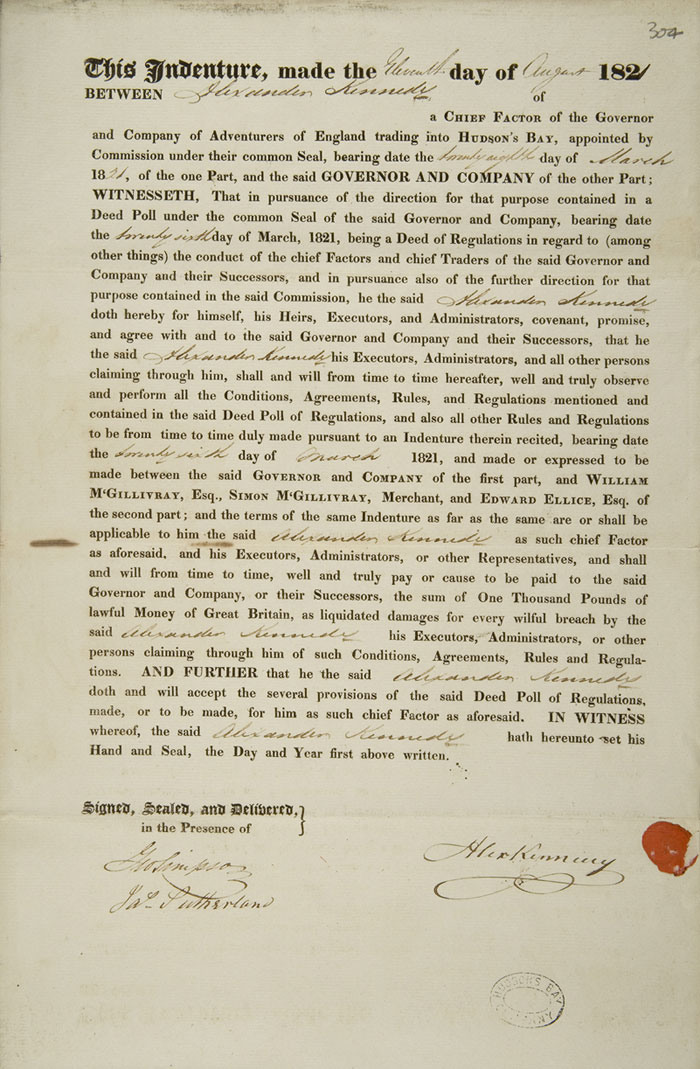 304
This Indenture, made the Eleventh day of August 1821
BETWEEN Alexander Kennedy of
a CHIEF FACTOR of the Governor
and Company of Adventurers of England trading into HUDSON'S BAY, appointed by
Commission under their common Seal, bearing date the twenty eighth day of March
1821, of the one Part, and the said GOVERNOR AND COMPANY of the other Part;
WITNESSETH, That in pursuance of the direction for that purpose contained in a
Deed Poll under the common Seal of the said Governor and Company, bearing date
the twenty sixth day of March, 1821, being a Deed of Regulations in regard to (among
other things) the conduct of the chief Factors and chief Traders of the said Governor and
Company and their Successors, and in pursuance also of the further direction for that
purpose contained in the said Commission, he the said Alexander Kennedy
doth hereby for himself, his Heirs, Executors, and Administrators, covenant, promise,
and agree with and to the said Governor and Company and their Successors, that he
the said Alexander Kennedy his Executors, Administrators, and all other persons
claiming through him, shall and will from time to time hereafter, well and truly observe
and perform all the Conditions, Agreements, Rules, and Regulations mentioned and
contained in the said Deed Poll of Regulations, and also all other Rules and Regulations
to be from time to time duly made pursuant to an Indenture therein recited, bearing date
the twenty sixth day of March 1821, and made or expressed to be
made between the said GOVERNOR and COMPANY of the first part, and WILLIAM
M'GILLIVRAY, Esq., SIMON M'GILLIVRAY, Merchant, and EDWARD ELLICE, Esq. of
the second part; and the terms of the same Indenture as far as the same are or shall be
applicable to him the said Alexander Kennedy as such chief Factor
as aforesaid, and his Executors, Administrators, or other Representatives, and shall
and will from time to time, well and truly pay or cause to be paid to the said
Governor and Company, or their Successors, the sum of One Thousand Pounds of
lawful Money of Great Britain, as liquidated damages for every wilful breach by the
said Alexander Kennedy his Executors, Administrators, or other
persons claiming through him of such Conditions, Agreements, Rules and Regula-
tions. AND FURTHER that he the said Alexander Kennedy
doth and will accept the several provisions of the said Deed Poll of Regulations,
made, or to be made, for him as such chief Factor as aforesaid. IN WITNESS
whereof, the said Alexander Kennedy hath hereunto set his
Hand and Seal, the Day and Year first above written.
Signed, Sealed, and Delivered,
in the Presence of
Geo Simpson
Alex Kennedy
Jas Sutherland
HUDSON'S BAY